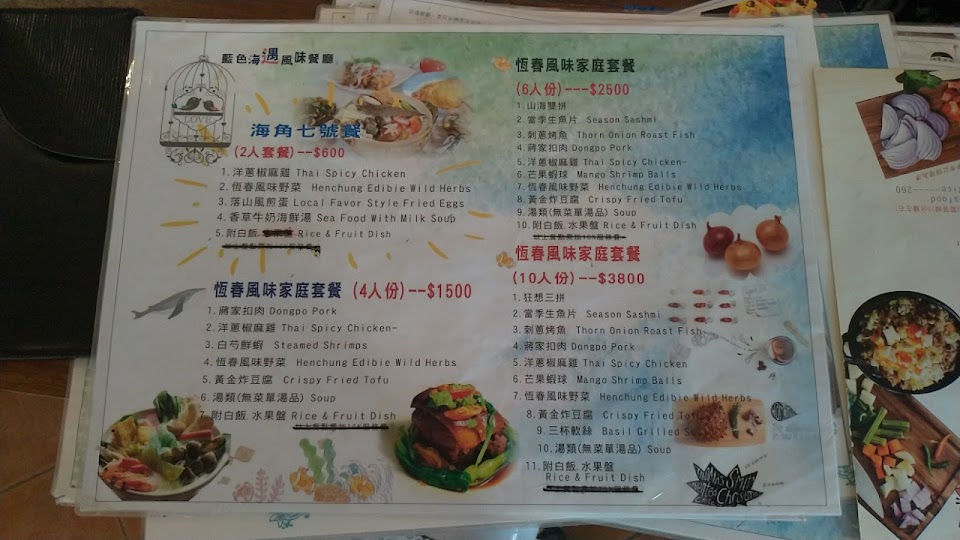 藍色海遇風味餐廳
LOVE
海角七號餐
(2人套餐)--$600
1. 洋蔥椒麻雞 Thai Spicy Chicken
2. 恆春風味野菜 Henchung Edibie Wild Herbs
3. 落山風煎蛋 Local Favor Style Fried Eggs
4. 香草牛奶海鮮湯 Sea Food With Milk Soup
5. 附白飯 Rice & Fruit Dish
恆春風味家庭套餐 (4人份)--$1500
1. 蔣家扣肉 Dongpo Pork
2. 洋蔥椒麻雞 Thai Spicy Chicken~
3. 白芍鮮蝦 Steamed Shrimps
4. 恆春風味野菜 Henchung Edibie Wild Herbs
5. 黃金炸豆腐 Crispy Fried Tofu
6. 湯類(無菜單湯品) Soup
7. 附白飯. 水果盤 Rice & Fruit Dish
恆春風味家庭套餐
(6人份)---$2500
1. 山海雙拼
2. 當季生魚片 Season Sashmi
3. 刺蔥烤魚 Thorn Onion Roast Fish
4. 蔣家扣肉 Dongpo Pork
5. 洋蔥椒麻雞 Thai Spicy Chicken~
6. 芒果蝦球 Mango Shrimp Balls
7. 恆春風味野菜 Henchung Edibie Wild Herbs
8. 黃金炸豆腐 Crispy Fried Tofu
9. 湯類(無菜單湯品) Soup
10. 附白飯. 水果盤 Rice & Fruit Dish
恆春風味家庭套餐
(10人份)---$3800
1. 狂想三拼
2. 當季生魚片 Season Sashmi
3. 刺蔥烤魚 Thorn Onion Roast Fish
4. 蔣家扣肉 Dongpo Pork
5. 洋蔥椒麻雞 Thai Spicy Chicken
6. 芒果蝦球 Mango Shrimp Balls
7. 恆春風味野菜 Henchung Edibie Wild Herbs
8. 黃金炸豆腐 Crispy Fried Tofu
9. 三杯軟絲 Basil Grilled
10. 湯類(無菜單湯品) Soup
11. 附白飯. 水果盤
Rice & Fruit Dish
260